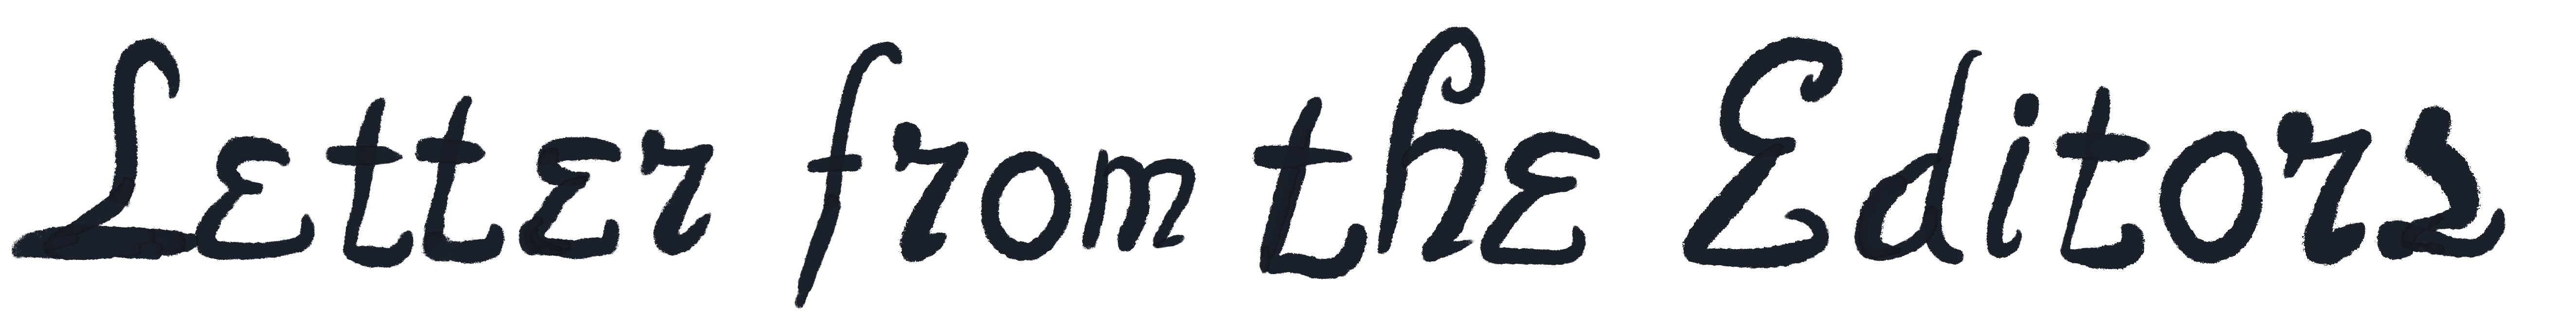 Letter from the Editors